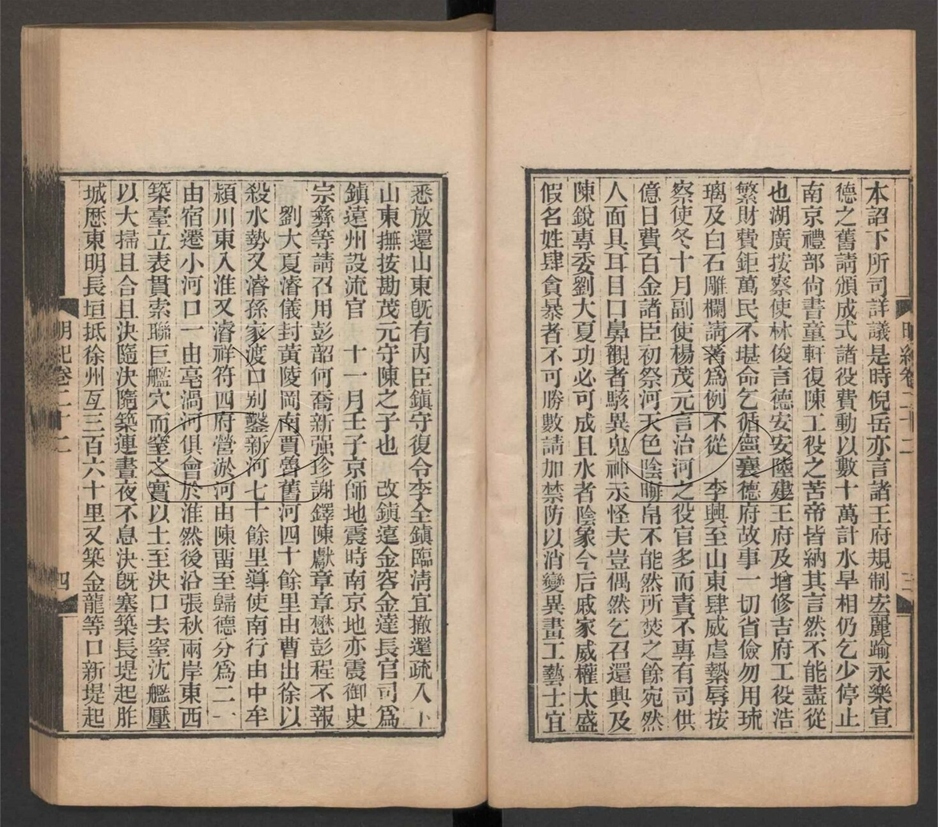 本詔下所司詳議是時倪岳亦言諸王府規制宏麗踰永樂宣
德之舊請頒成式諸役費動以數十萬計水旱相仍乞少停止
南京禮部尙書童軒復陳工役之苦帝皆納其言然不能盡從
也湖廣按察使林俊言德安安陸建王府及增修吉府工役浩
繁財費鉅萬民不堪命乞循寧襄德府故事一切省儉勿用琉
璃及白石雕欄請著爲例不從　李興至山東肆威虐縶辱按
察使冬十月副使楊茂元言治河之役官多而責不專有司供
億日費百金諸臣初祭河天色陰晦帛不能然所焚之餘宛然
人面具耳目口鼻觀者駭異鬼神示怪夫豈偶然乞召還興及
陳銳專委劉大夏功必可成且水者陰象今后戚家威權太盛
假名姓肆貪暴者不可勝數請加禁防以消變異畫工藝士宜
明紀卷二十二
三
悉放還山東旣有內臣鎭守復令李全鎭臨淸宜撤還疏入下
山東撫按勘茂元守陳之子也　改鎭遠金容金達長官司爲
鎭遠州設流官　十一月壬子京師地震時南京地亦震御史
宗彝等請召用彭韶何喬新强珍謝鐸陳獻章章懋彭程不報
劉大夏濬儀封黃陵岡南賈魯舊河四十餘里由曹出徐以
殺水勢又濬孫家渡口別鑿新河七十餘里導使南行由中牟
潁川東入淮又濬祥符四府營淤河由陳留至歸德分爲二一
由宿遷小河口一由亳渦河俱會於淮然後沿張秋兩岸東西
築臺立表貫索聯巨艦穴而窒之實以土至決口去窒沈艦壓
以大埽且合且決隨決隨築連晝夜不息決旣塞築長堤起胙
城歷東明長垣抵徐州亙三百六十里又築金龍等口新堤起
明紀卷二十二
四